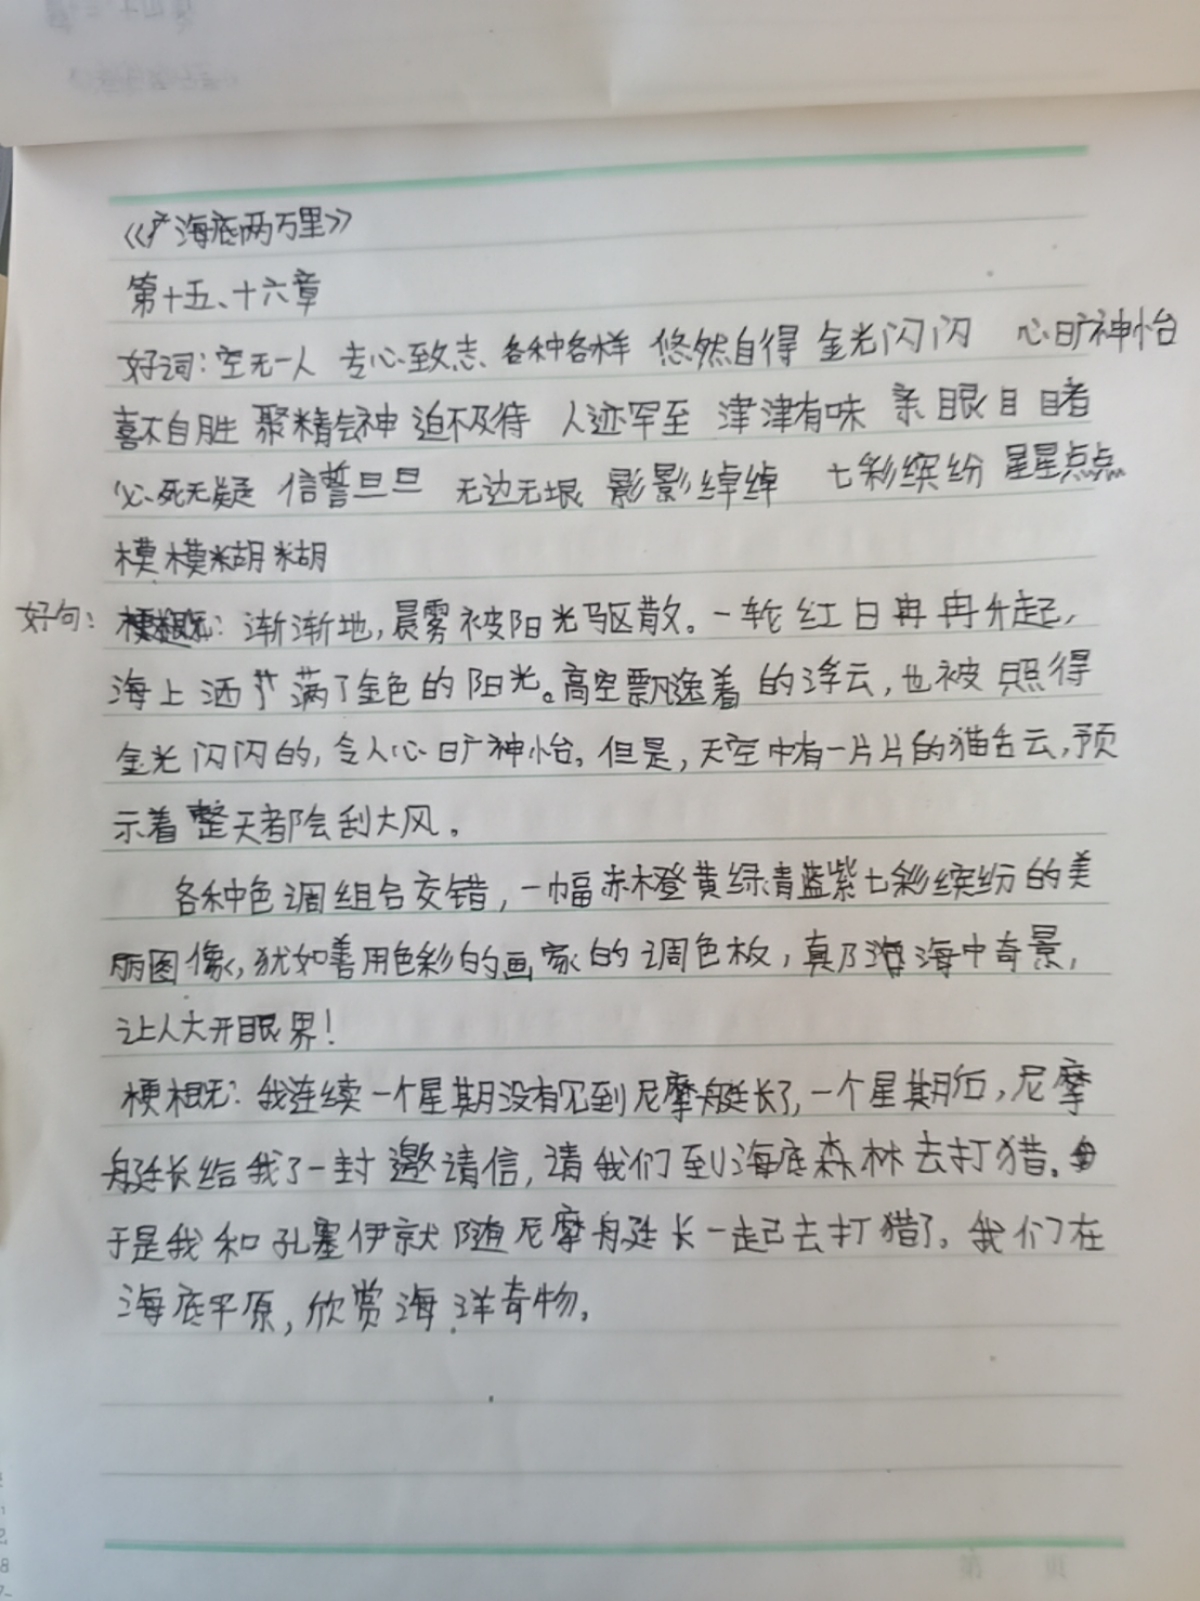 《海底两万里》
第十五、十六章
好词:空无一人 专心致志、各种各样 悠然自得 金光闪闪 心旷神怡
喜不自胜 聚精会神 迫不及待 人迹罕至 津津有味 亲眼目睹
必死无疑 信誓旦旦 无边无垠 影影绰绰 七彩缤纷 星星点点
模模糊糊
好句: 梗概: 渐渐地,晨雾被阳光驱散。一轮红日冉冉升起,
海上洒满了金色的阳光。高空飘逸着的浮云,也被照得
金光闪闪的,令人心旷神怡。但是,天空中有一片片的猫舌云,预
示着整天都会刮大风。
各种色调组合交错,一幅赤橙黄绿青蓝紫七彩缤纷的美
丽图像,犹如善用色彩的画家的调色板,真乃海中奇景,
让人大开眼界!
梗概:我连续一个星期没有见到尼摩艇长了,一个星期后,尼摩
艇长给我了一封邀请信,请我们到海底森林去打猎。
于是我和孔塞伊就随尼摩艇长一起去打猎了。我们在
海底平原,欣赏海洋奇物。